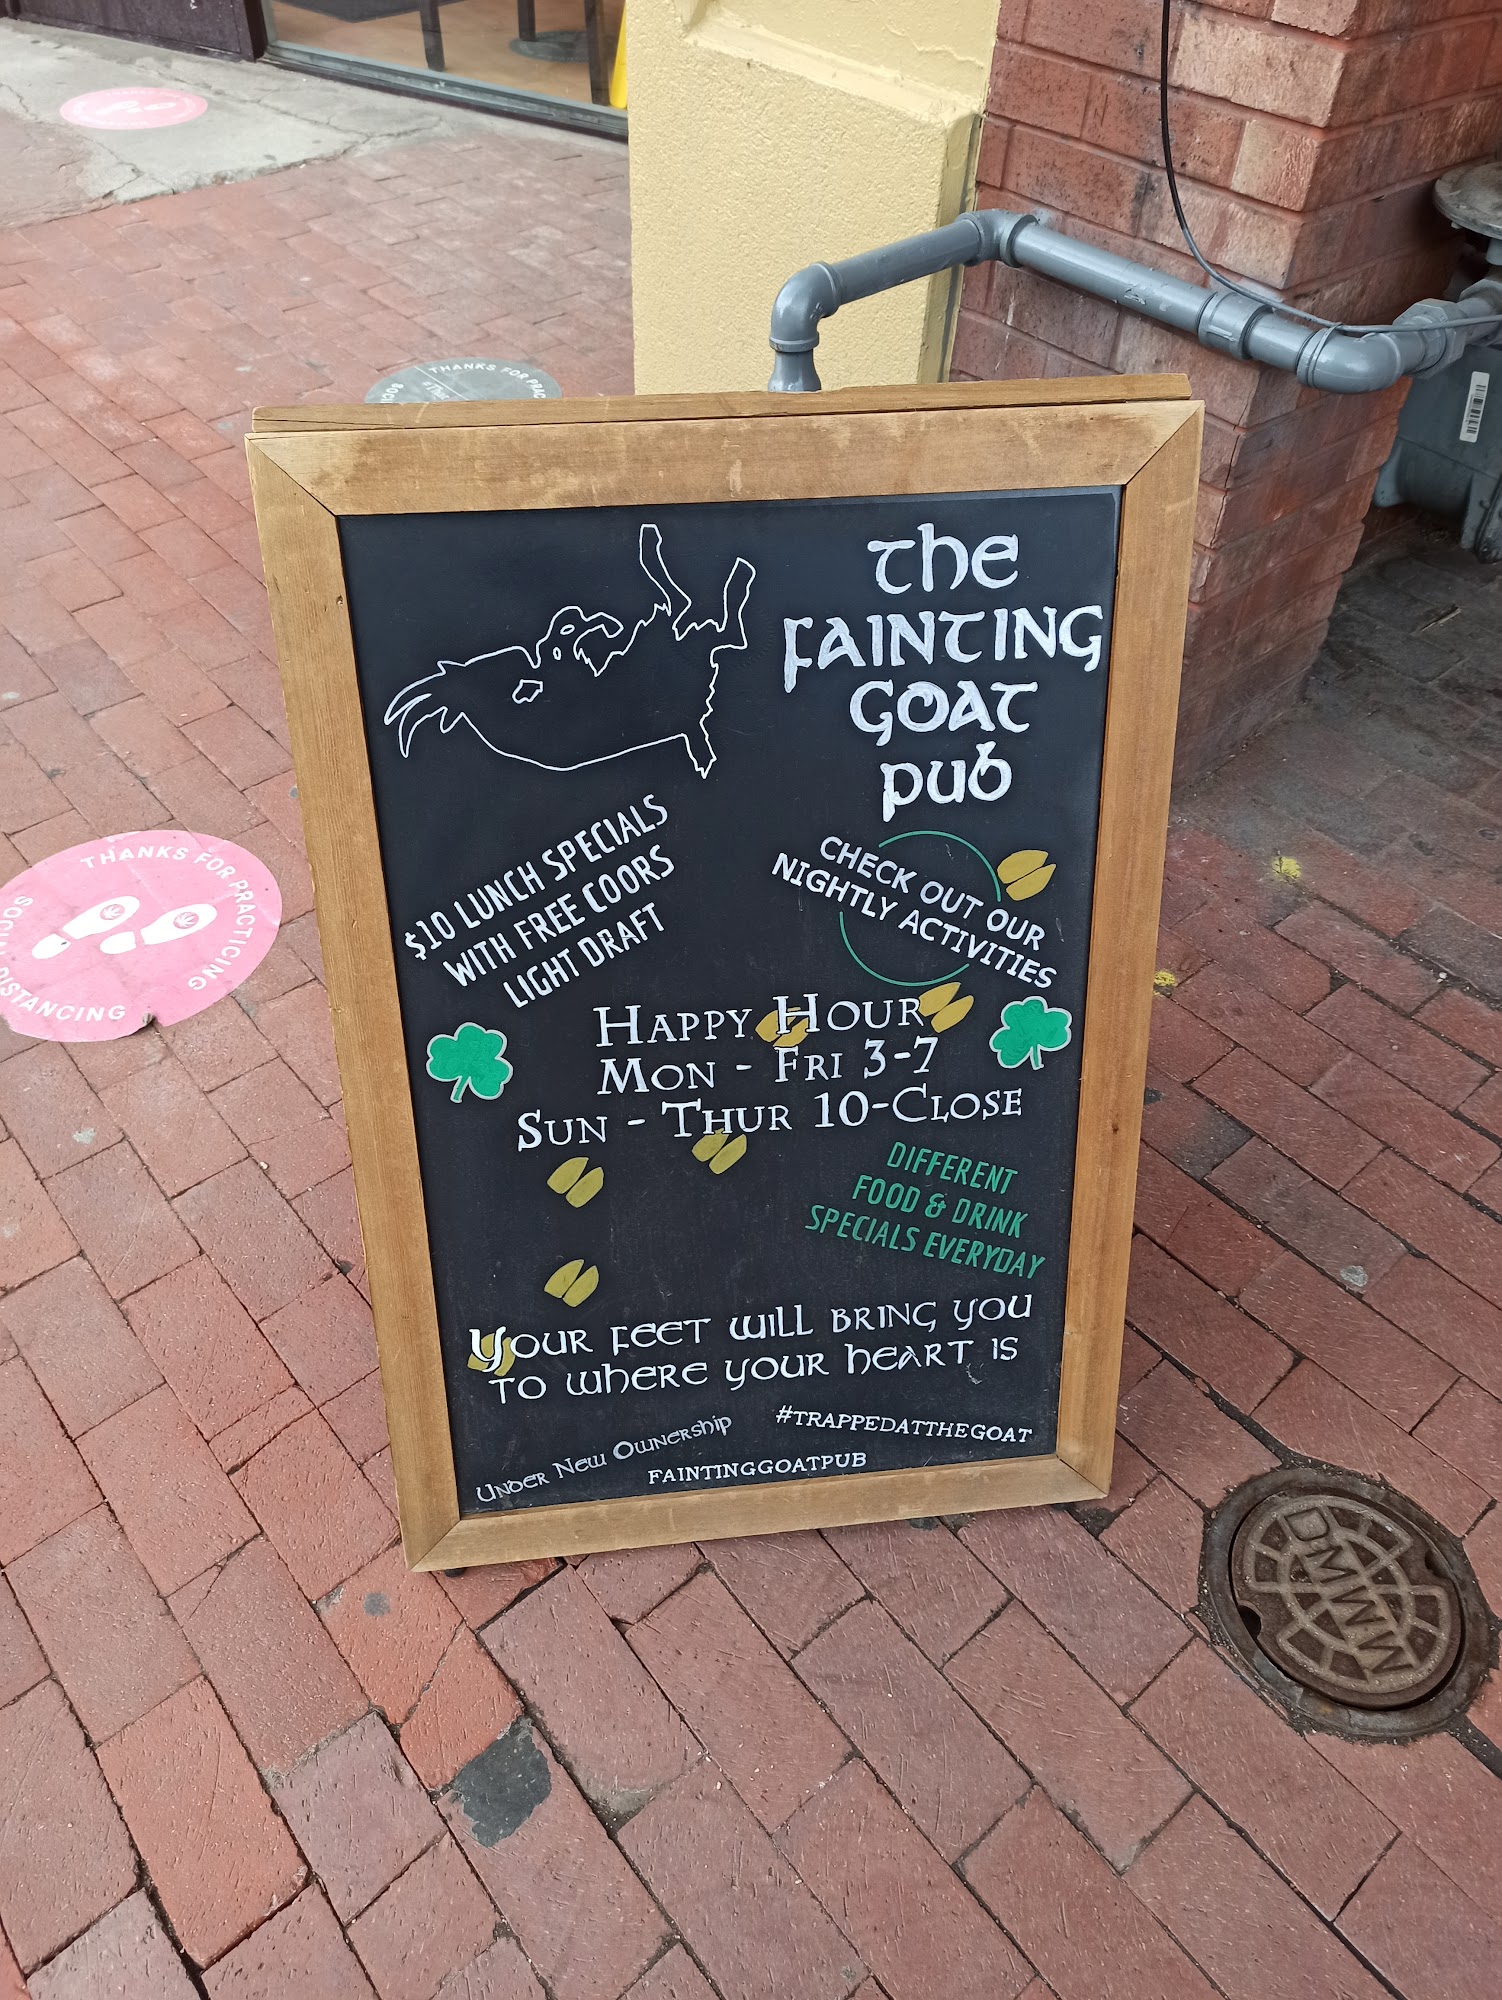 The
Fainting
Goat
Pub
$10 LUNCH SPECIALS
WITH FREE COORS
LIGHT DRAFT
CHECK OUT OUR
NIGHTLY ACTIVITIES
HAPPY HOUR
MON - FRI 3-7
SUN - THUR 10-CLOSE
DIFFERENT
FOOD & DRINK
SPECIALS EVERYDAY
YOUR FEET WILL BRING YOU
TO WHERE YOUR HEART IS
UNDER NEW OWNERSHIP
#TRAPPEDATTHEGOAT
FAINTINGGOATPUB
THANKS FOR PRACTICING
SOCIAL DISTANCING
THANKS FOR
DMWW